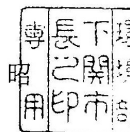 環境部
下関市
長之印
専用
昭